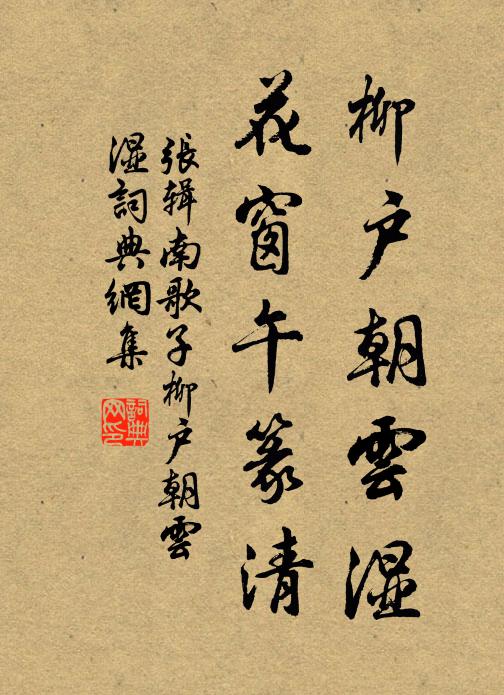 柳户朝雲濕
花窗午篆清
張辑南歌子柳户朝雲
濕詞典網集
詞典网印